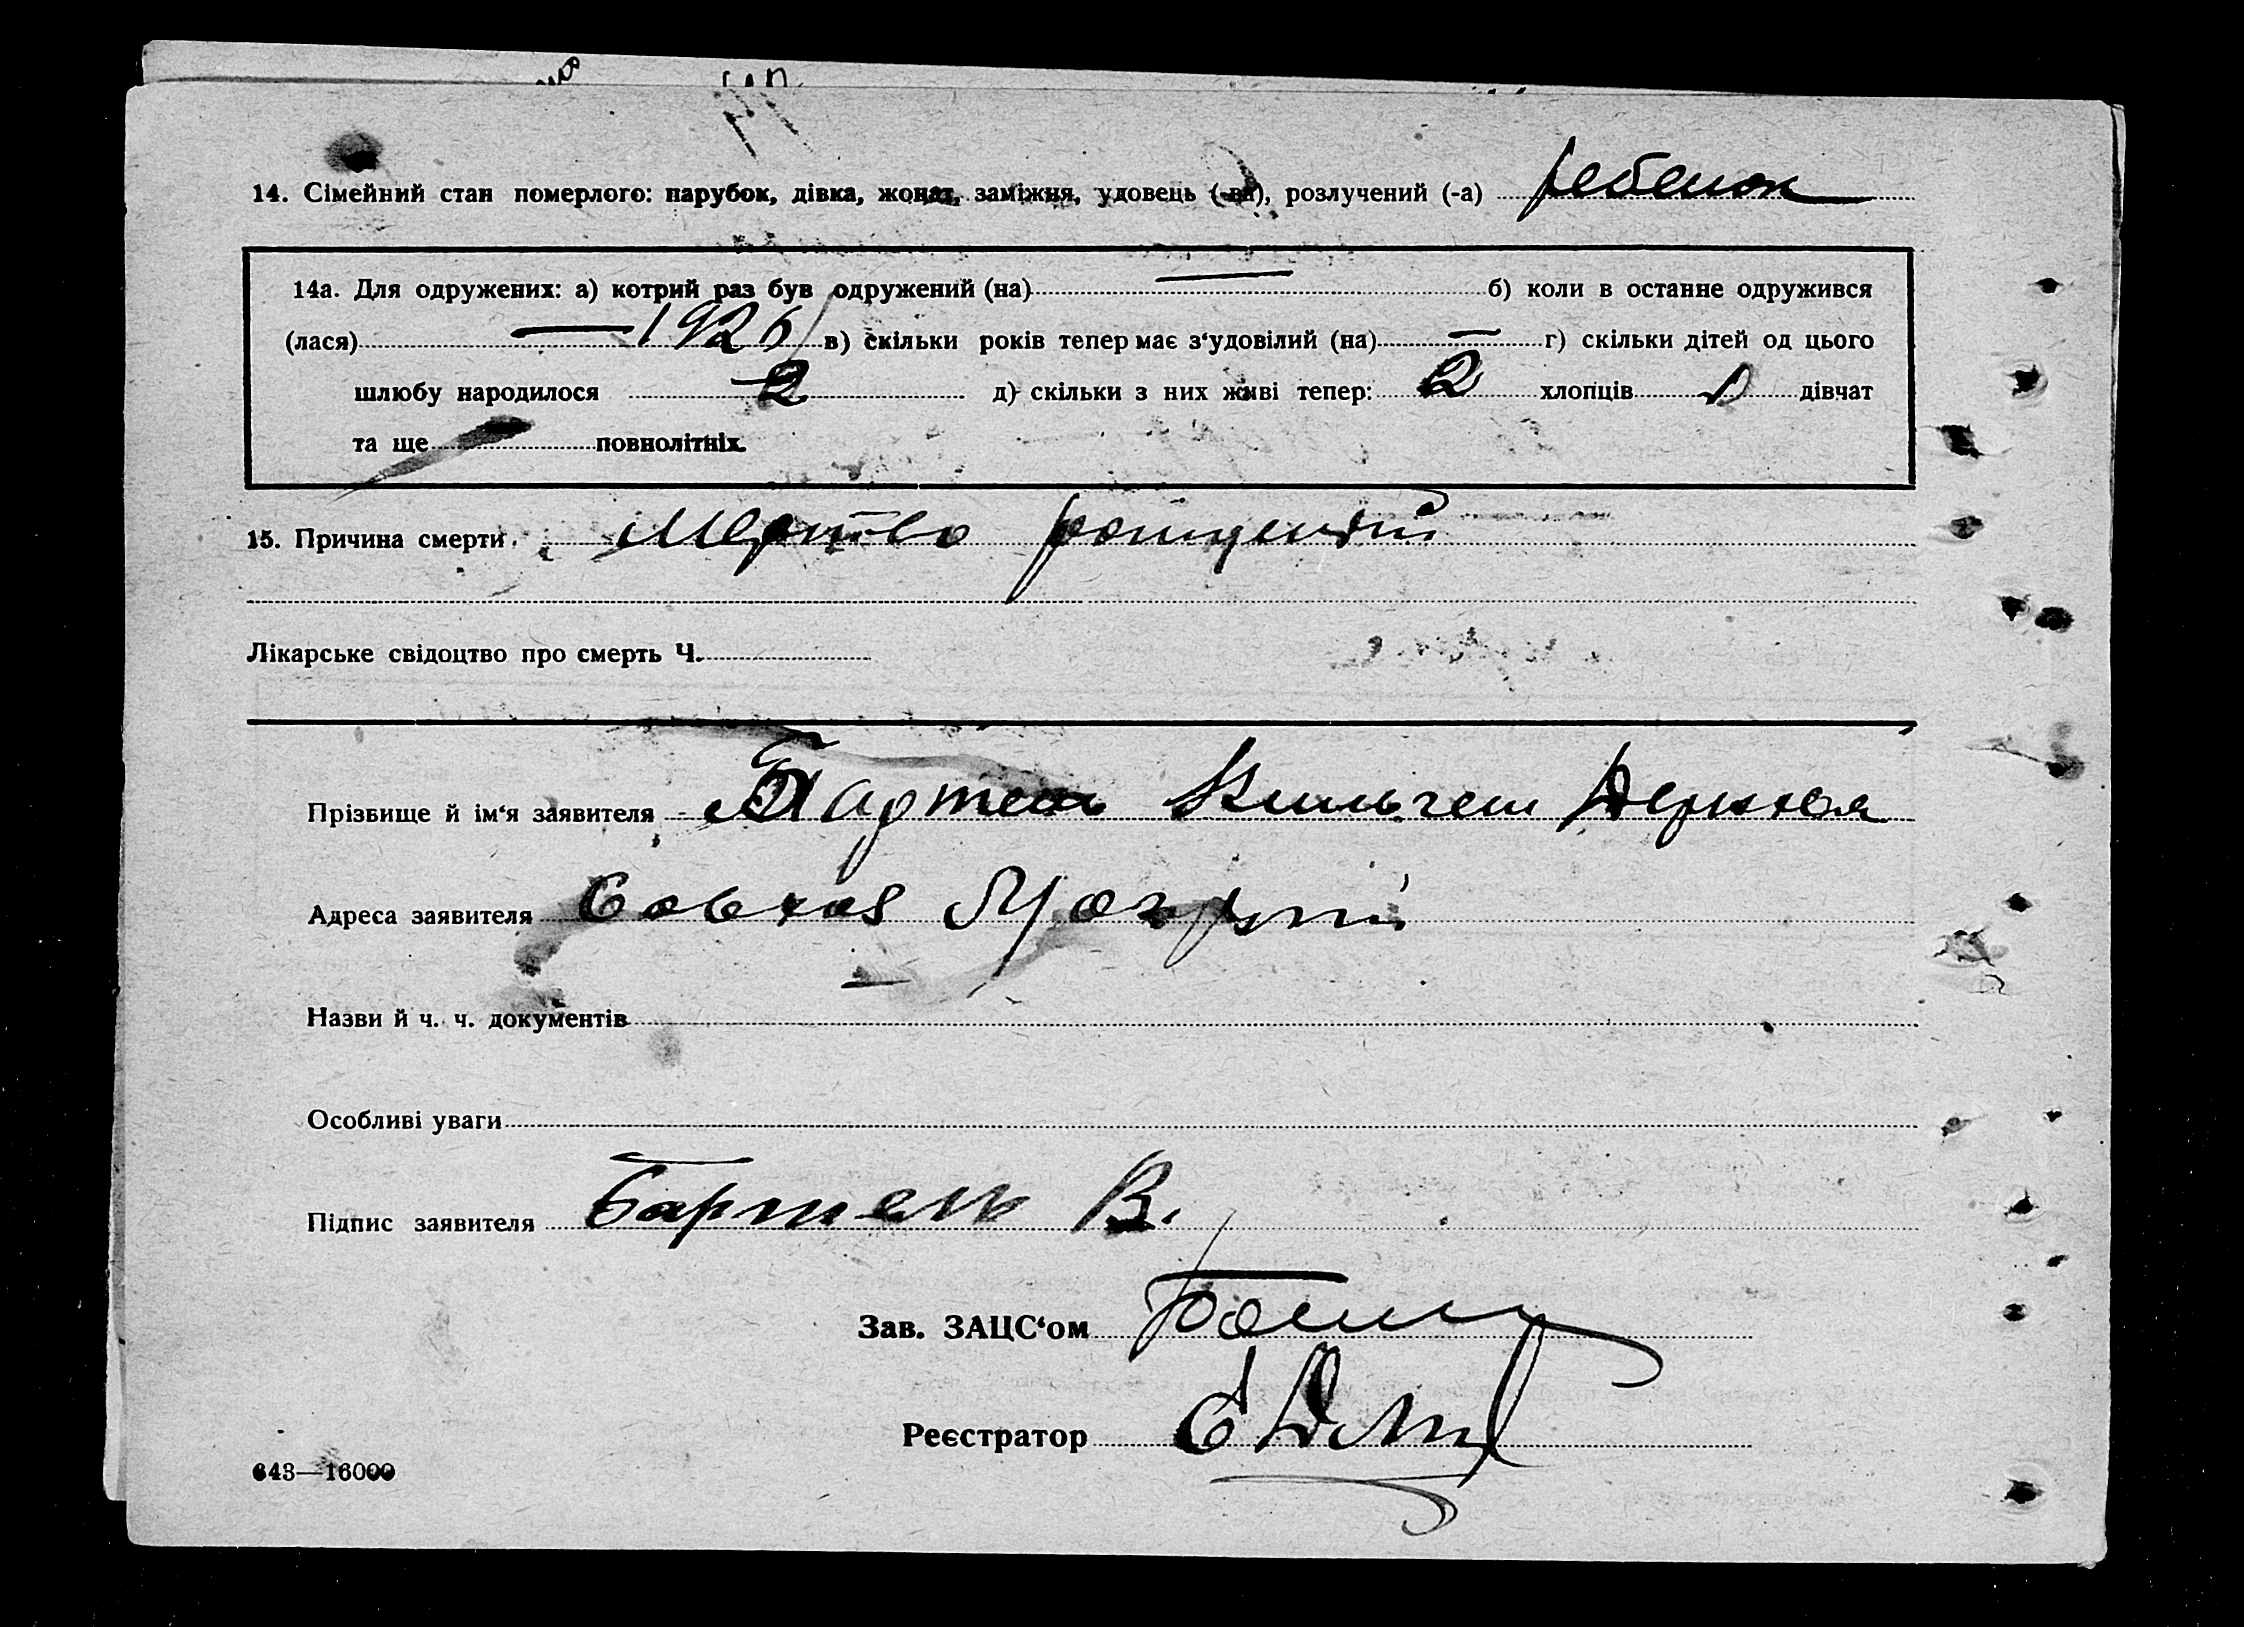 14. Сімейний стан померлого: парубок, дівка, жонат, заміжня, удовець (-ва), розлучений (-а) ребенок
14а. Для одружених: а) котрий раз був одружений (на) — б) коли в останнє одружився
(лася) — 1926 в) скільки років тепер має з‘удовілий (на) — г) скільки дітей од цього
шлюбу народилося 2 д) скільки з них живі тепер: 2 хлопців дівчат
та ще повнолітніх.
15. Причина смерти. Мертво
Лікарське свідоцтво про смерть Ч.
Прізбище й ім‘я заявителя Бартель Вильгельм
Адреса заявителя Совхоз
Назви й ч. ч. документів
Особливі уваги
Підпис заявителя Бартель В.
Зав. ЗАЦС‘ом
Реєстратор
643—16000